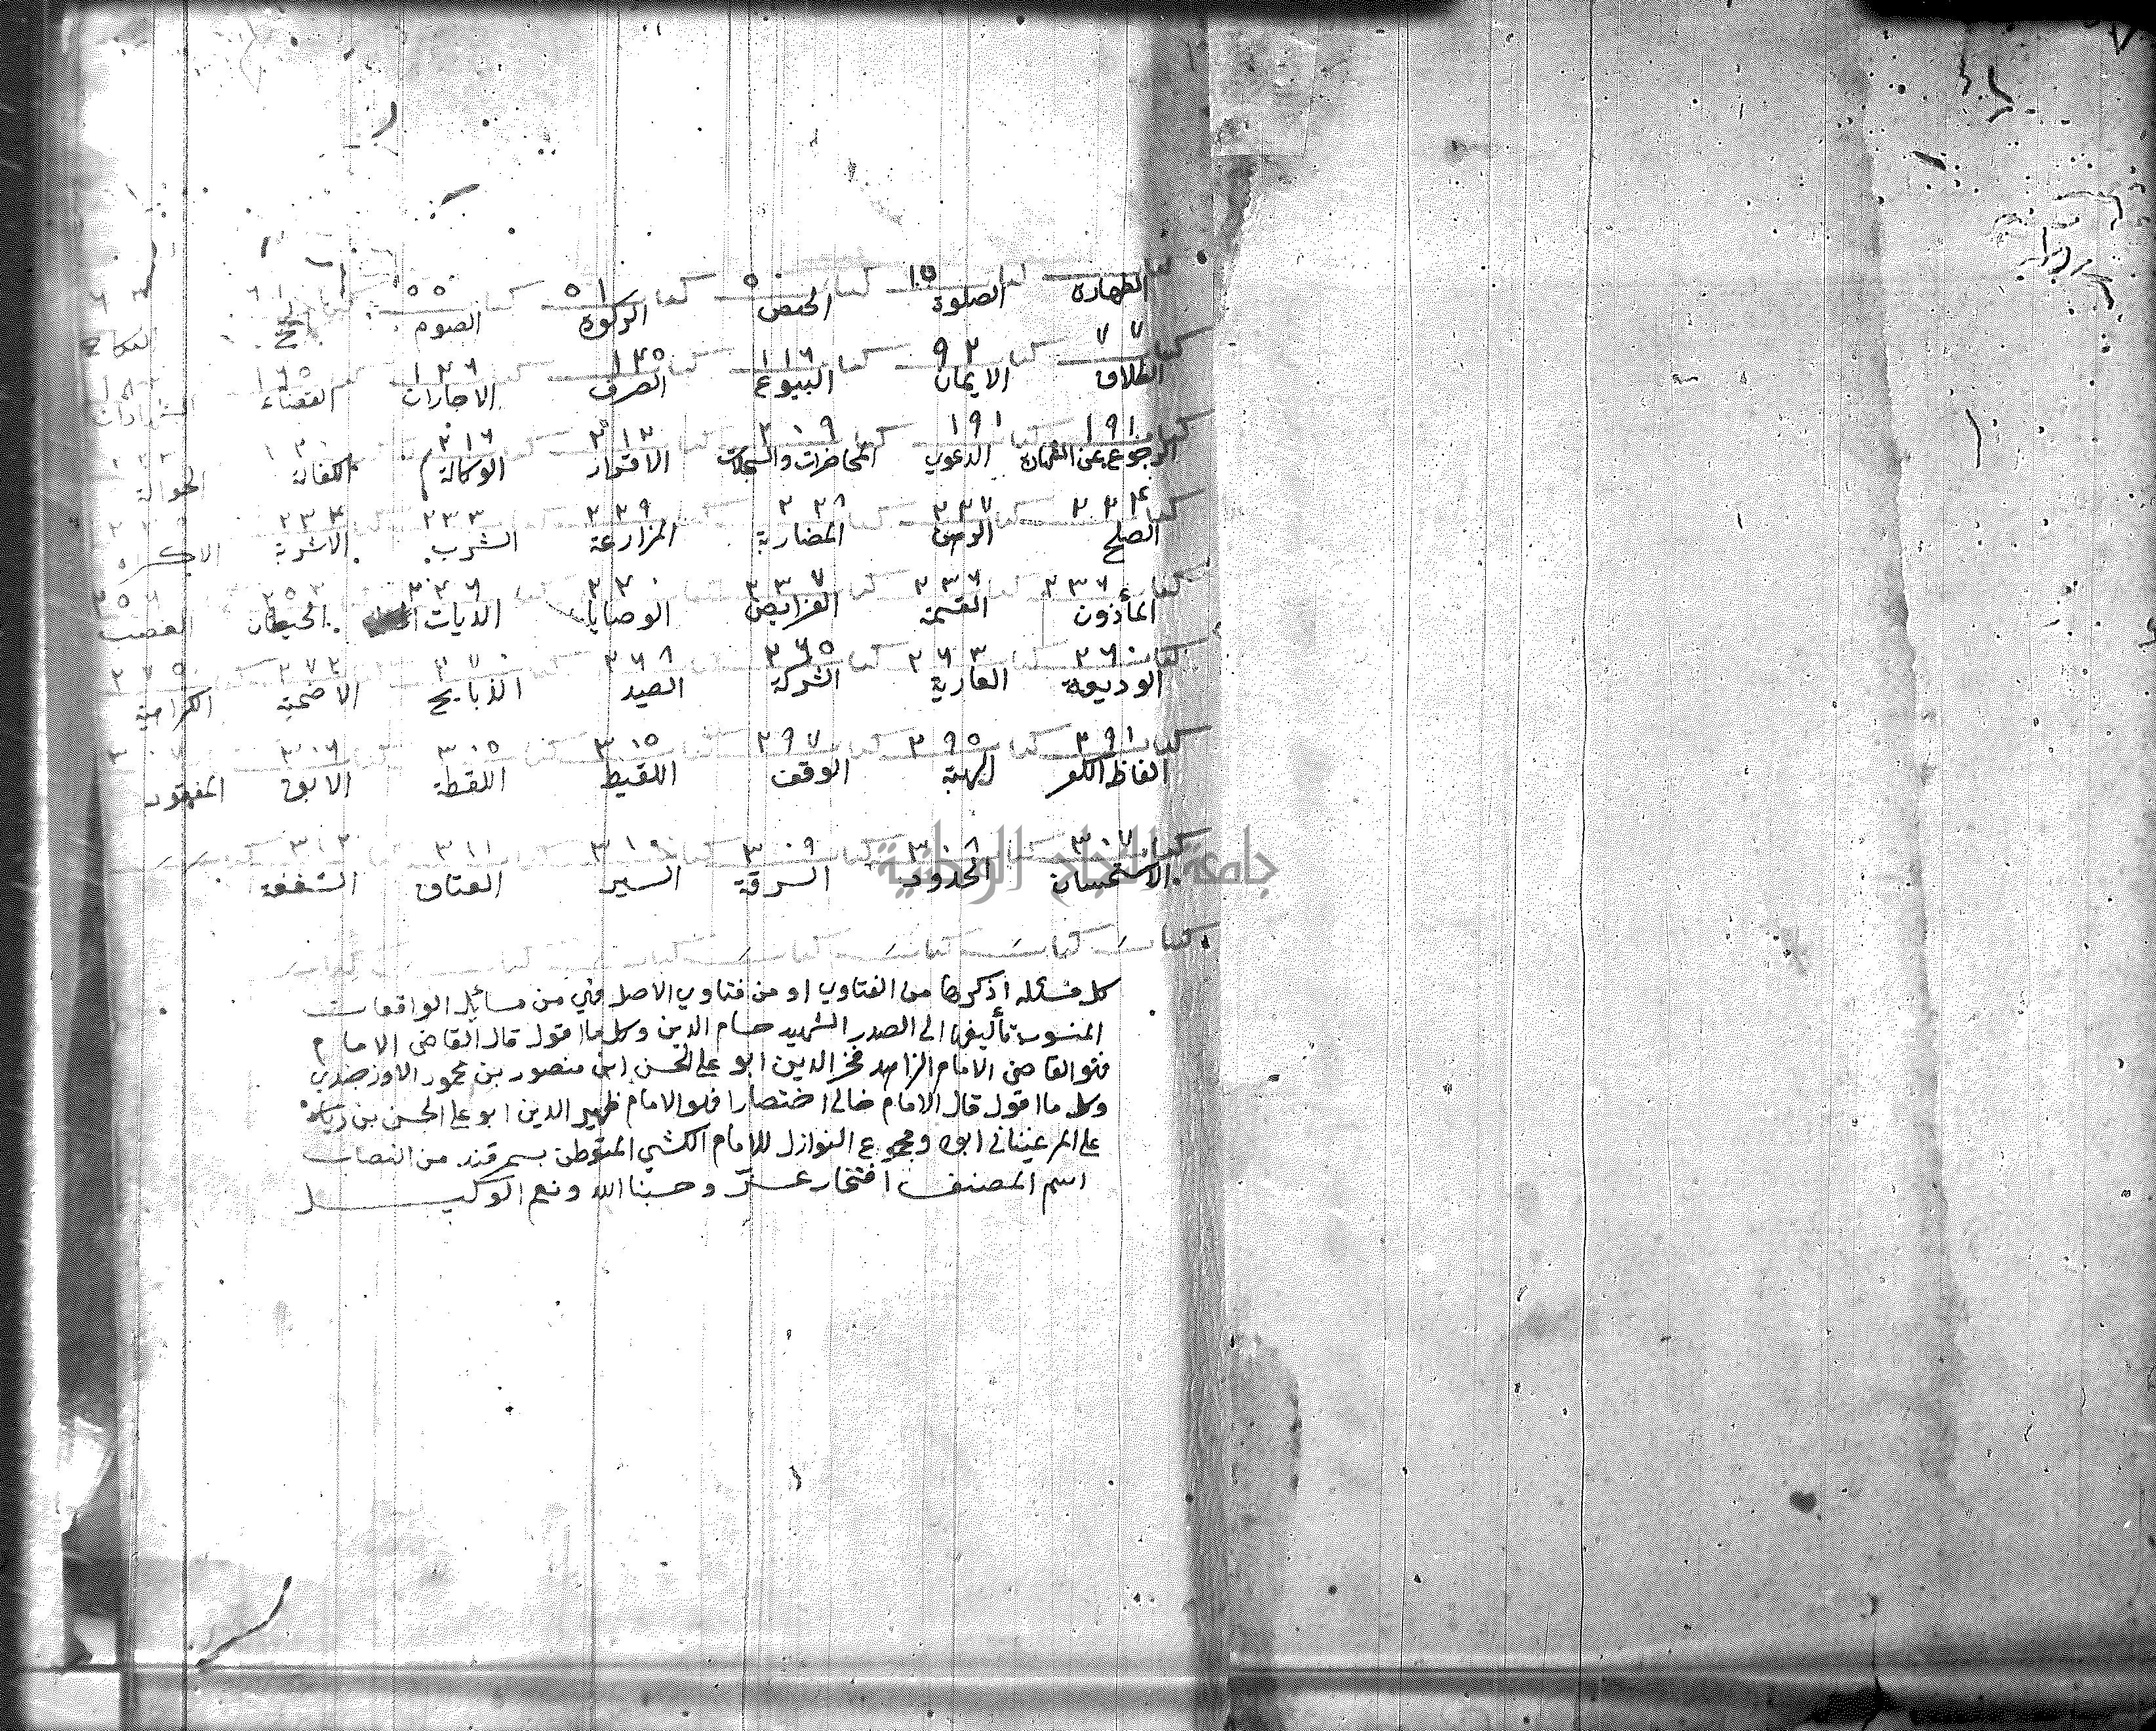 كتاب الطهارة كتاب الصلوة ١٧ كتاب الحيض ٥٠ كتاب الزكوة ٥١ كتاب الصوم ٥٥ كتاب الحج ٦١ النكاح
كتاب الطلاق ٧٧ كتاب الايمان ٩٢ كتاب البيوع ١١٦ كتاب الصرف ١٣٥ كتاب الاجارات ١٣٦ القضاء ١٦٥ الشهادات
كتاب الرجوع عن الشهادة ١٩١ كتاب الدعوى ١٩١ كتاب المحاضرات والسجلات ٢٠٩ الاقرار ٢١٣ الوكالة ٢١٦ الكفالة الحوالة
كتاب الصلح ٢٢٤ كتاب الرهن ٢٢٧ كتاب المضاربة ٢٢٨ المزارعة ٢٢٩ الشرب ٢٣٣ الاشربة ٢٣٣ الاكراه
كتاب المأذون ٢٣٦ القسمة ٢٣٦ الفرايض ٢٣٧ الوصايا الديات ٢٤٦ الحيطان الغصب
كتاب الوديعة ٢٦٠ العارية ٢٦٣ الشركة ٢٦٥ الصيد ٢٦٨ الذبايح ٢٧٠ الاضحية ٢٧٢ الكراهية ٢٧٥
كتاب الفاظ الكفر ٢٩١ الهبة ٢٩٥ الوقف ٢٩٧ اللقيط ٣٠٥ اللقطة ٣٠٥ الابق ٣٠٦ المفقود ٣٠٧
كتاب الاستحسان ٣٠٧ الحدود ٣٠٨ السرقة ٣٠٩ السير ٣١٠ العتاق ٣١١ الشفعة ٣١٢
كتاب كتاب كتاب كتاب كتاب
كل مسئلة اذكرها من الفتاوى او من فتاوى الاصل فهي من مسائل الواقعات
المنسوب تأليفها الى الصدر الشهيد حسام الدين وكل ما اقول قال القاضى الامام
فهو القاضى الامام الزاهد فخر الدين ابو على الحسن ابن منصور بن محمود الاوزجندي
وكل ما اقول قال الامام خالى اختصارا فهو الامام ظهير الدين ابو على الحسن بن
على المرغينانى ابوه ومجموع النوازل للامام الكشي المتوطن بسمرقند من النصاب
اسم المصنف افتخار وحسبنا الله ونعم الوكيل
جامعة النجاح الوطنية